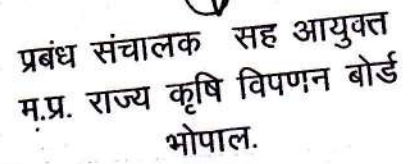 प्रबंध संचालक सह आयुक्त
म.प्र. राज्य कृषि विपणन बोर्ड
भोपाल.